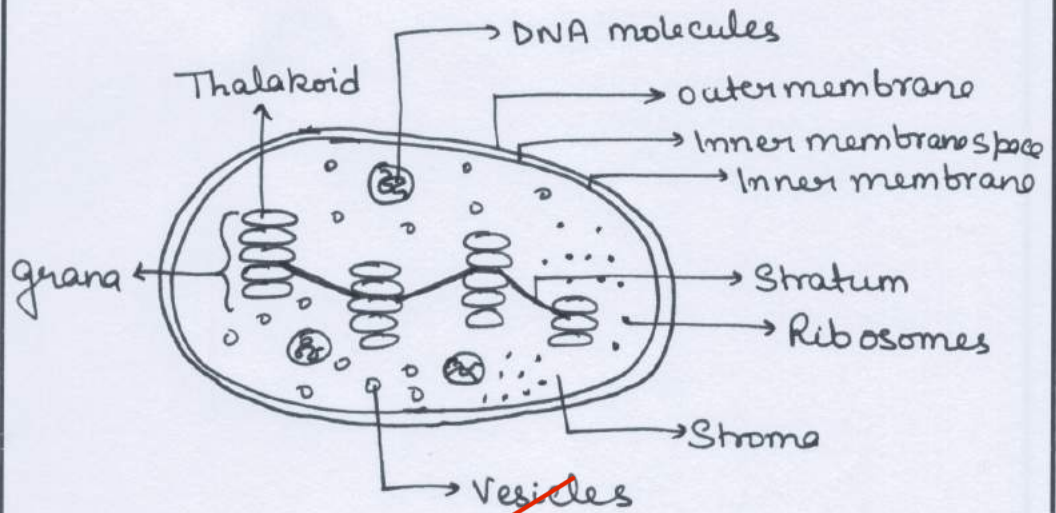 DNA molecules
Thalakoid
outer membrane
Inner membrane space
Inner membrane
grana
Stratum
Ribosomes
Stroma
Vesicles